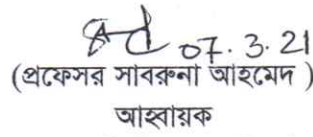 07.3.21
(প্রফেসর সাবরুনা আহমেদ )
আহ্বায়ক